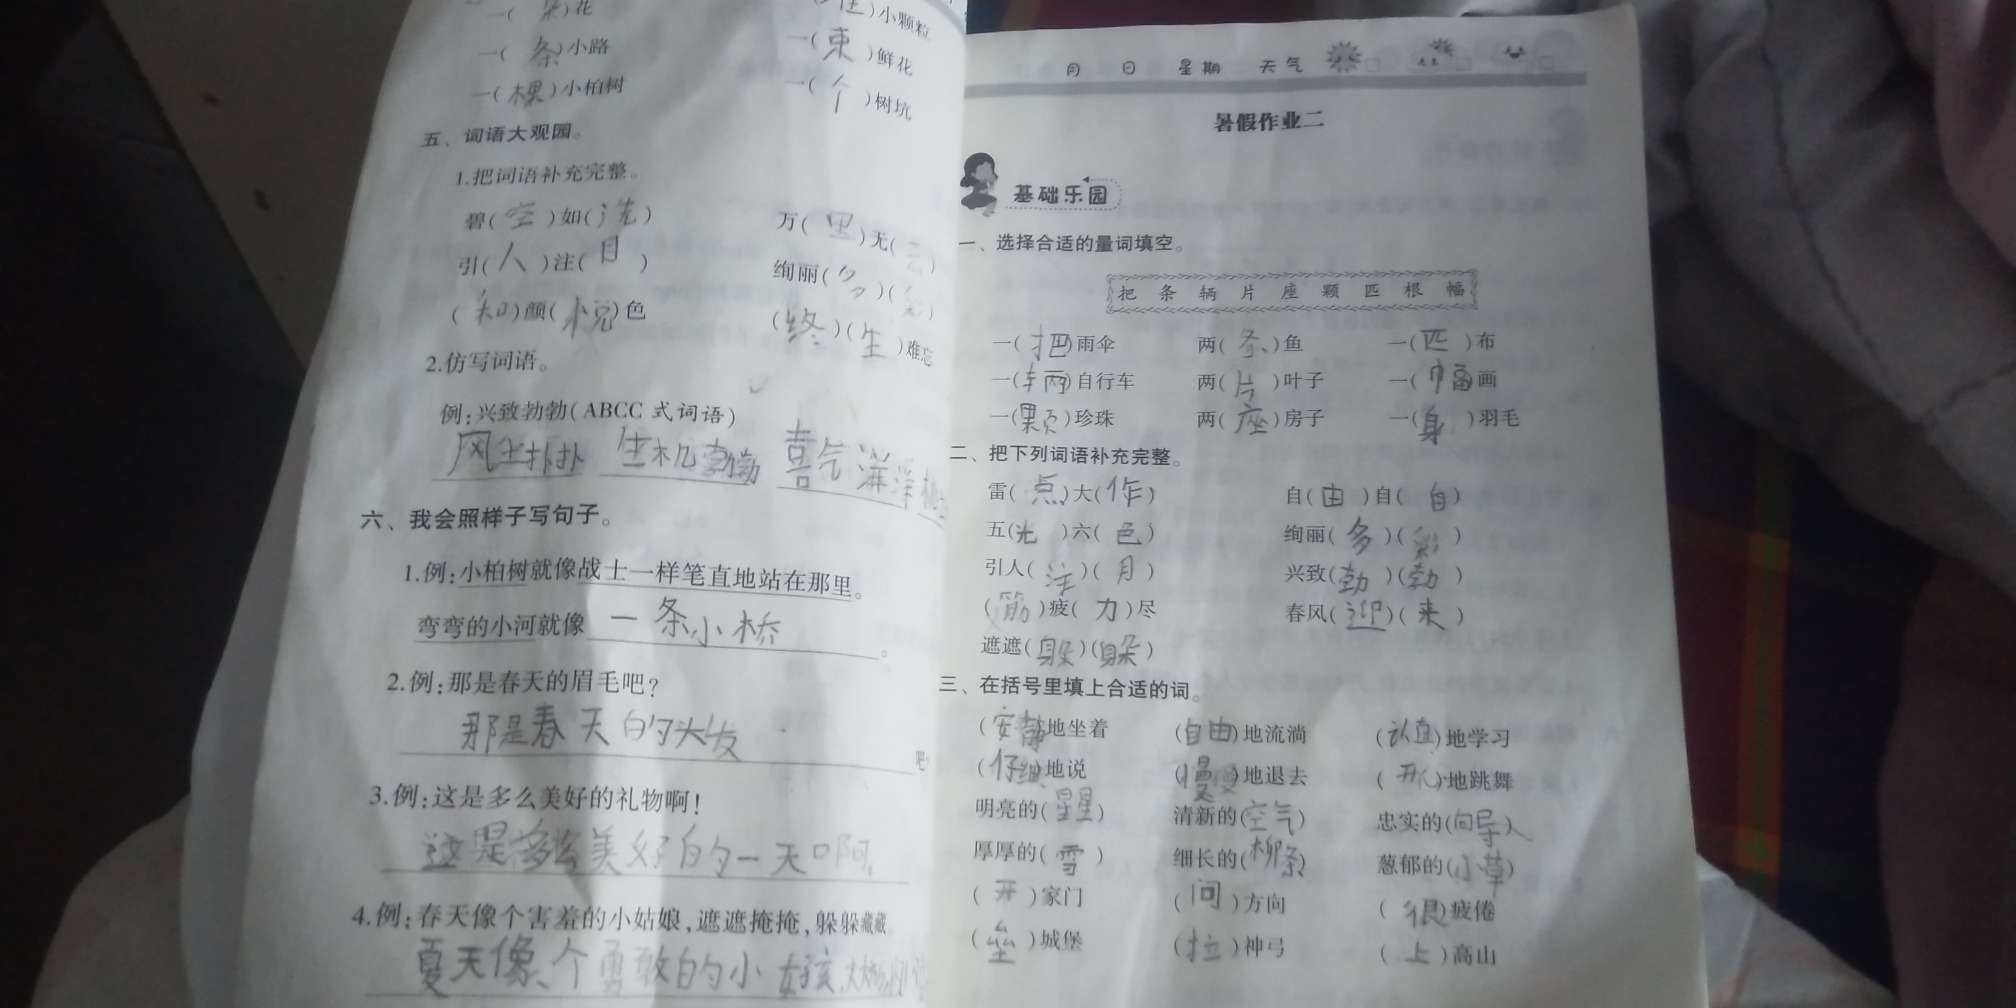 一(朵)花
)小颗粒
一(条)小路
一(束)鲜花
一(棵)小柏树
一(个)树坑
五、词语大观园。
1.把词语补充完整。
碧(空)如(洗)
万(里)无(云)
引(人)注(目)
绚丽(多)(彩)
(和)颜(悦)色
(终)(生)难忘
2.仿写词语。
例:兴致勃勃(ABCC 式词语)
风尘扑扑 生机勃勃 喜气洋洋
六、我会照样子写句子。
1.例:小柏树就像战士一样笔直地站在那里。
弯弯的小河就像一条小桥。
2.例:那是春天的眉毛吧?
那是春天的头发吧?
3.例:这是多么美好的礼物啊!
这是多么美好的一天啊
4.例:春天像个害羞的小姑娘,遮遮掩掩,躲躲藏藏
夏天像个勇敢的小女孩,
月 日 星期 天气
暑假作业二
基础乐园
一、选择合适的量词填空。
把 条 辆 片 座 颗 匹 根 幅
一(把)雨伞 两(条)鱼 一(匹)布
一(辆)自行车 两(片)叶子 一(幅)画
一(颗)珍珠 两(座)房子 一(身)羽毛
二、把下列词语补充完整。
雷(点)大(作) 自(由)自(自)
五(光)六(色) 绚丽(多)(彩)
引人(注)(月) 兴致(勃)(勃)
(筋)疲(力)尽 春风(迎)(来)
遮遮(躲)(躲)
三、在括号里填上合适的词。
(安静)地坐着 (自由)地流淌 (认真)地学习
(仔细)地说 (慢慢)地退去 (开心)地跳舞
明亮的(星星) 清新的(空气) 忠实的(向导)
厚厚的(雪) 细长的(柳条) 葱郁的(小草)
(开)家门 (问)方向 (很)疲倦
(垒)城堡 (拉)神弓 (上)高山